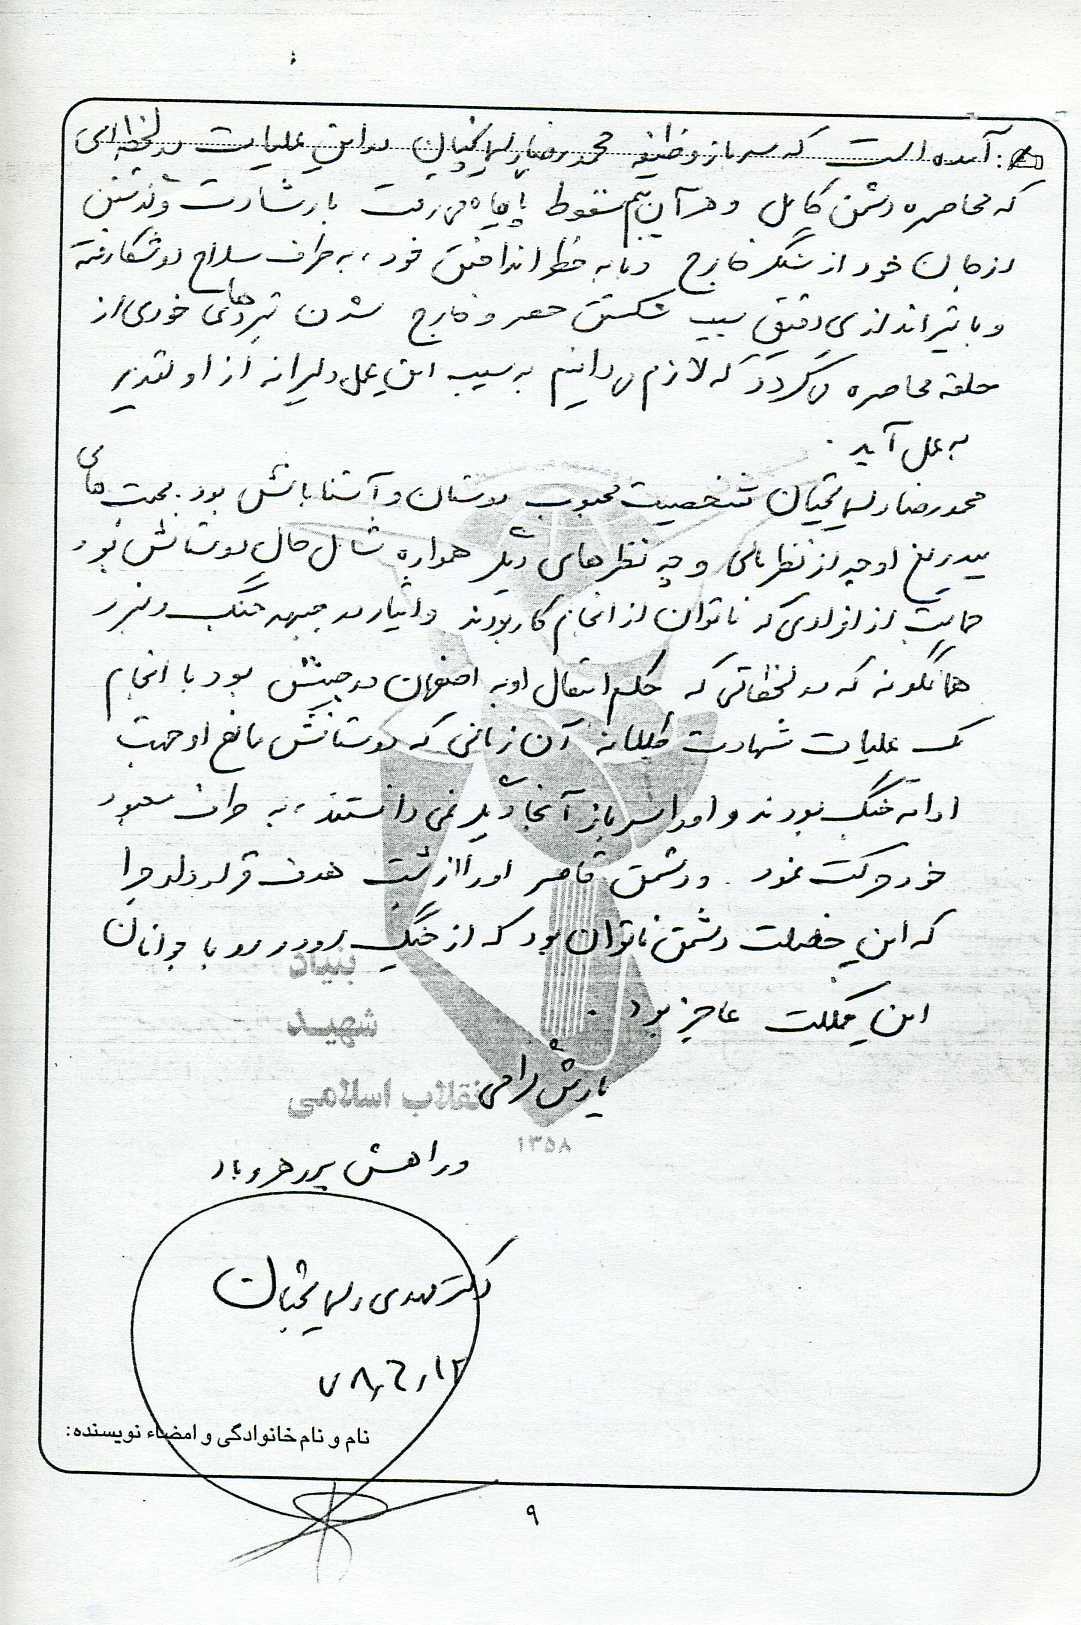 آمده است که سرباز وظیفه محمدرضا رسایخچیان در این عملیات در لحظه ای
که محاصره دشمن کامل و هر آن بیم سقوط پایگاه می رفت با رشادت و گذشتن
از جان خود از سنگر خارج و با به خطر انداختن خود، به طرف سلاح دوشکا رفته
و با تیراندازی دقیق سبب شکستن حصر و خارج شدن نیروهای خودی از
حلقه محاصره می گردد که لازم می دانیم به سبب این عمل دلیرانه از او تقدیر
به عمل آید.
محمدرضا شخصیت محبوب دوستان و آشنایانش بود. محبت های
بیدریغ او چه از نظر مالی و چه نظرهای دیگر همواره شامل حال دوستانش بود
حمایت از افرادی که ناتوان از انجام کار بودند و ایثار در جبهه جنگ و نبرد
همانگونه که در لحظاتی که حکم انتقال او به اصفهان در جیبش بود با انجام
یک عملیات شهادت طلبانه آن زمانی که دوستانش مانع او جهت
ادامه جنگ بودند و او را سرباز آنجا دیگر نمی دانستند، به طرف معبود
خود حرکت نمود. و دشمن قاصر او را از پشت هدف قرار داد چرا
که این خصلت دشمن ناتوان بود که از جنگ رودررو با جوانان
این مملکت عاجز بود.
یادش گرامی
و راهش پر رهرو باد
دکتر مهدی
۷۸٫۶٫۱۲
نام و نام خانوادگی و امضاء نویسنده:
۹
بنیاد
شهید
انقلاب اسلامی
۱۳۵۸